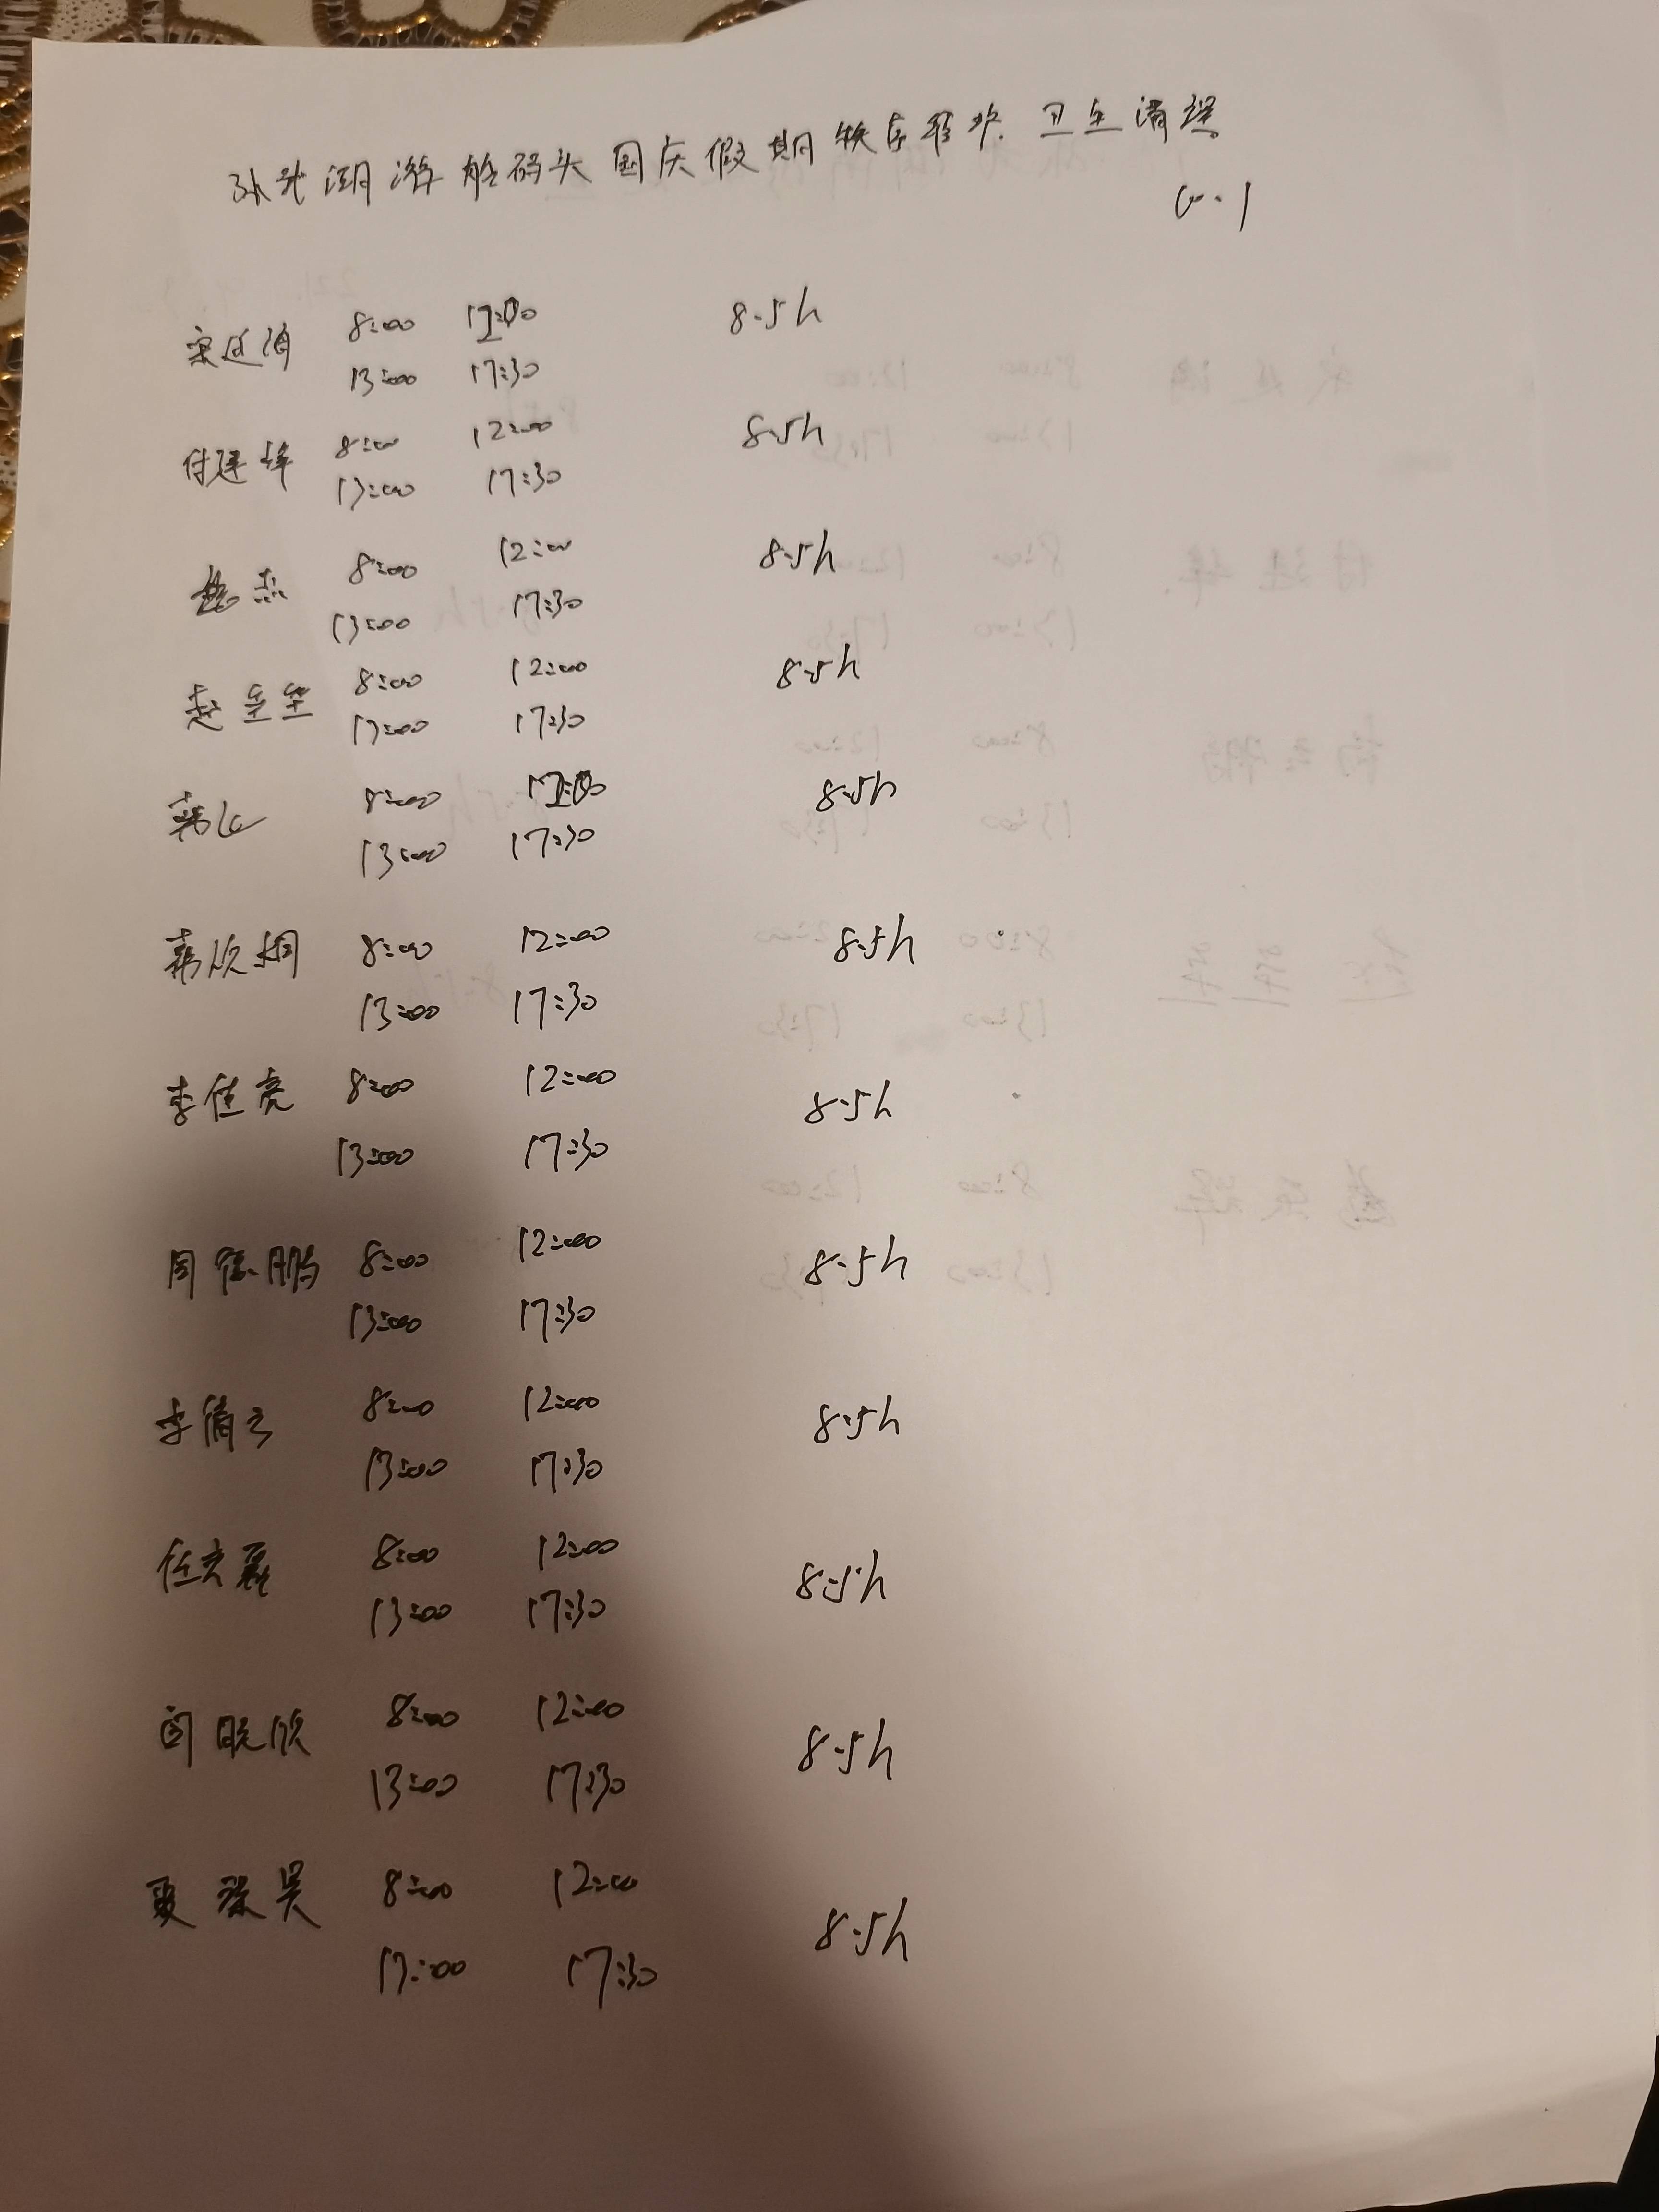 游船码头国庆假期秩序维护.卫生清理
10.1
宋延海 8:00 12:00 8.5h
13:00 17:30
付建锋 8:00 12:00 8.5h
13:00 17:30
8:00 12:00 8.5h
13:00 17:30
赵 8:00 12:00 8.5h
13:00 17:30
韩 8:00 12:00 8.5h
13:00 17:30
韩欣桐 8:00 12:00 8.5h
13:00 17:30
李佳亮 8:00 12:00 8.5h
13:00 17:30
周德鹏 8:00 12:00 8.5h
13:00 17:30
李倩云 8:00 12:00 8.5h
13:00 17:30
任 8:00 12:00 8.5h
13:00 17:30
闫晓欣 8:00 12:00 8.5h
13:00 17:30
夏 8:00 12:00 8.5h
13:00 17:30